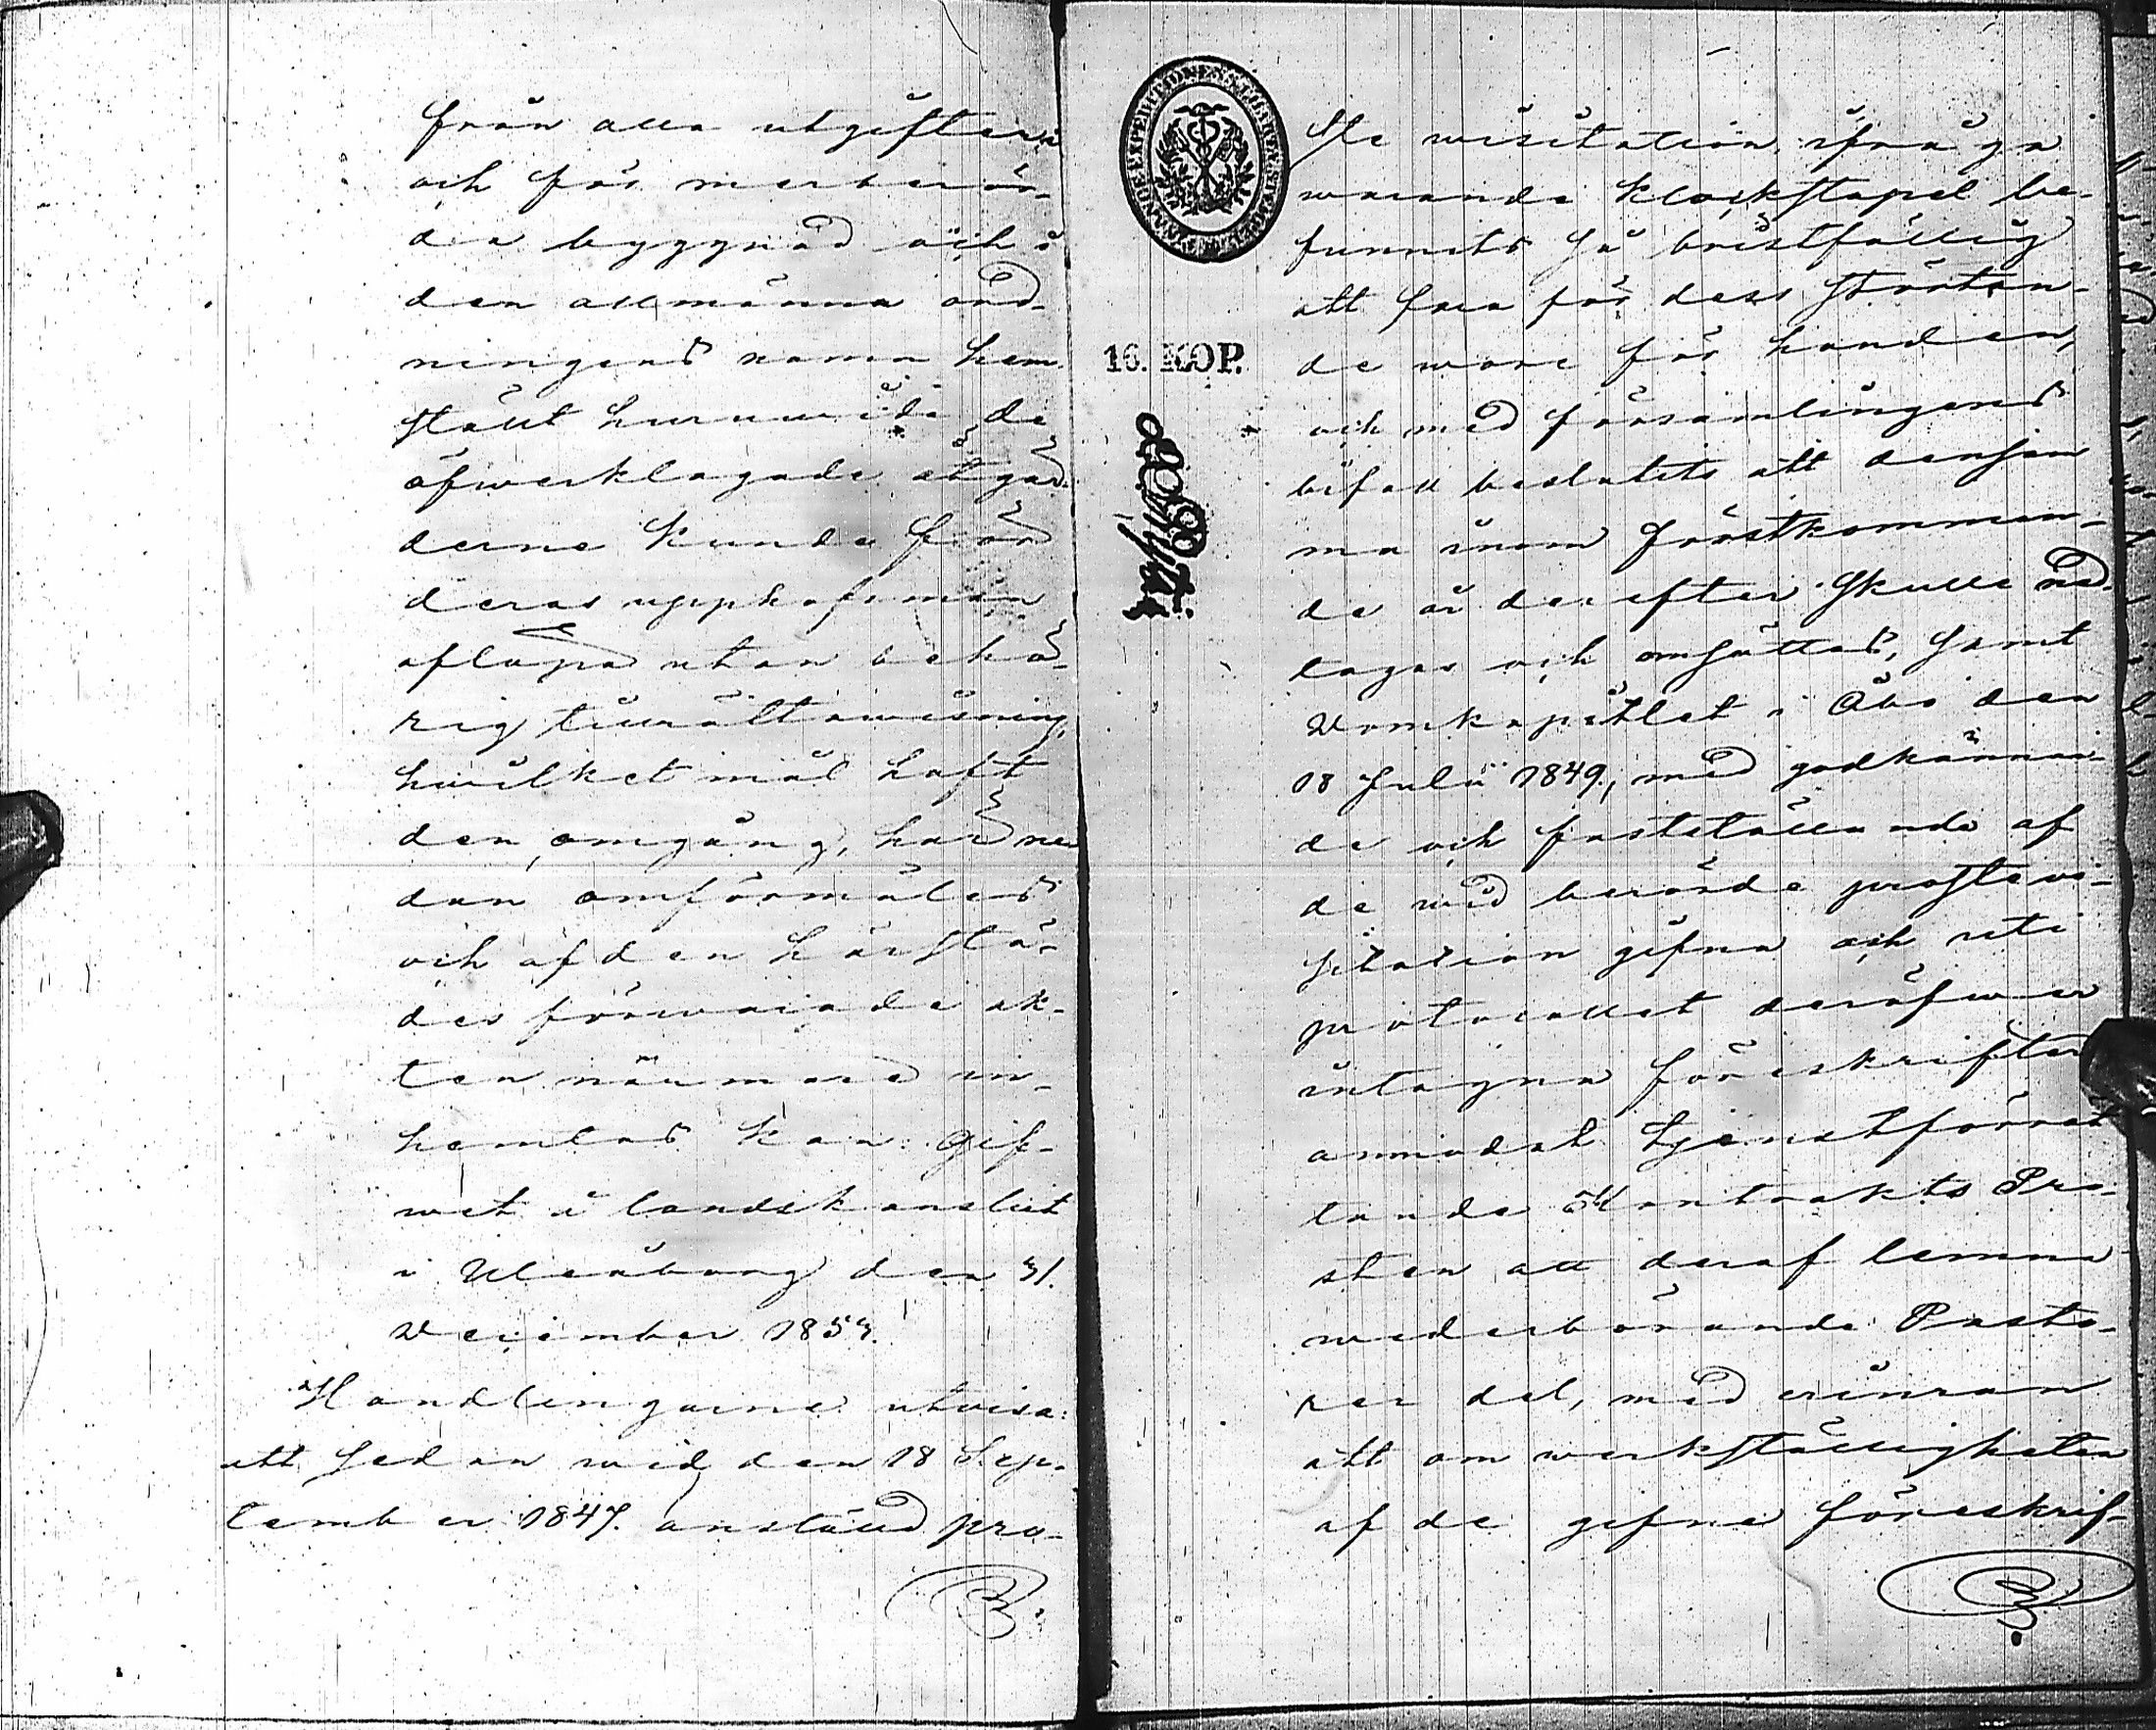 från alla utgifterne
och för merberör-
da byggnad och i
den allmänna ord-
ningens namn hem-
ställt huruwida de
öfwerklagade åtgär-
derne kunde för
deras upphofsmän
aflöpa utan behö-
rig tillrättawisning,
hwilket mål haft
den omgång, har ne-
dan omförmäles
och af den härstä-
des förwarade ak-
ten närmare in-
hemtas kan. Gif-
wet å landskansliet
i Uleåborg den 31.
December 1853.
Handlingarne utvisa:
att sedan wid den 18 Sep-
tember 1847. anställd pro-
ste wisitation ifråga
warande klockstapel be-
funnits så bristfällig
att fara för dess störtan-
de wore för handen,
och med församlingens
bifall beslutits att densam-
ma inom förstkomman-
de år derefter skulle ned-
tagas och omsättas, samt
Domkapitlet i Åbo den
18 Julii 1849, med godkännan-
de och fastställande af
de wid berörde prostewi-
sitation gifna och uti
protocollet deröfwer
intagna föreskrifter
anmodat tjenstförrät-
tande Kontrakts Pro-
sten att deraf lemna
wederbörande Pasto-
rer del, med erinran
att om werkställigheten
af de gifna föreskrif-
16. KOP.